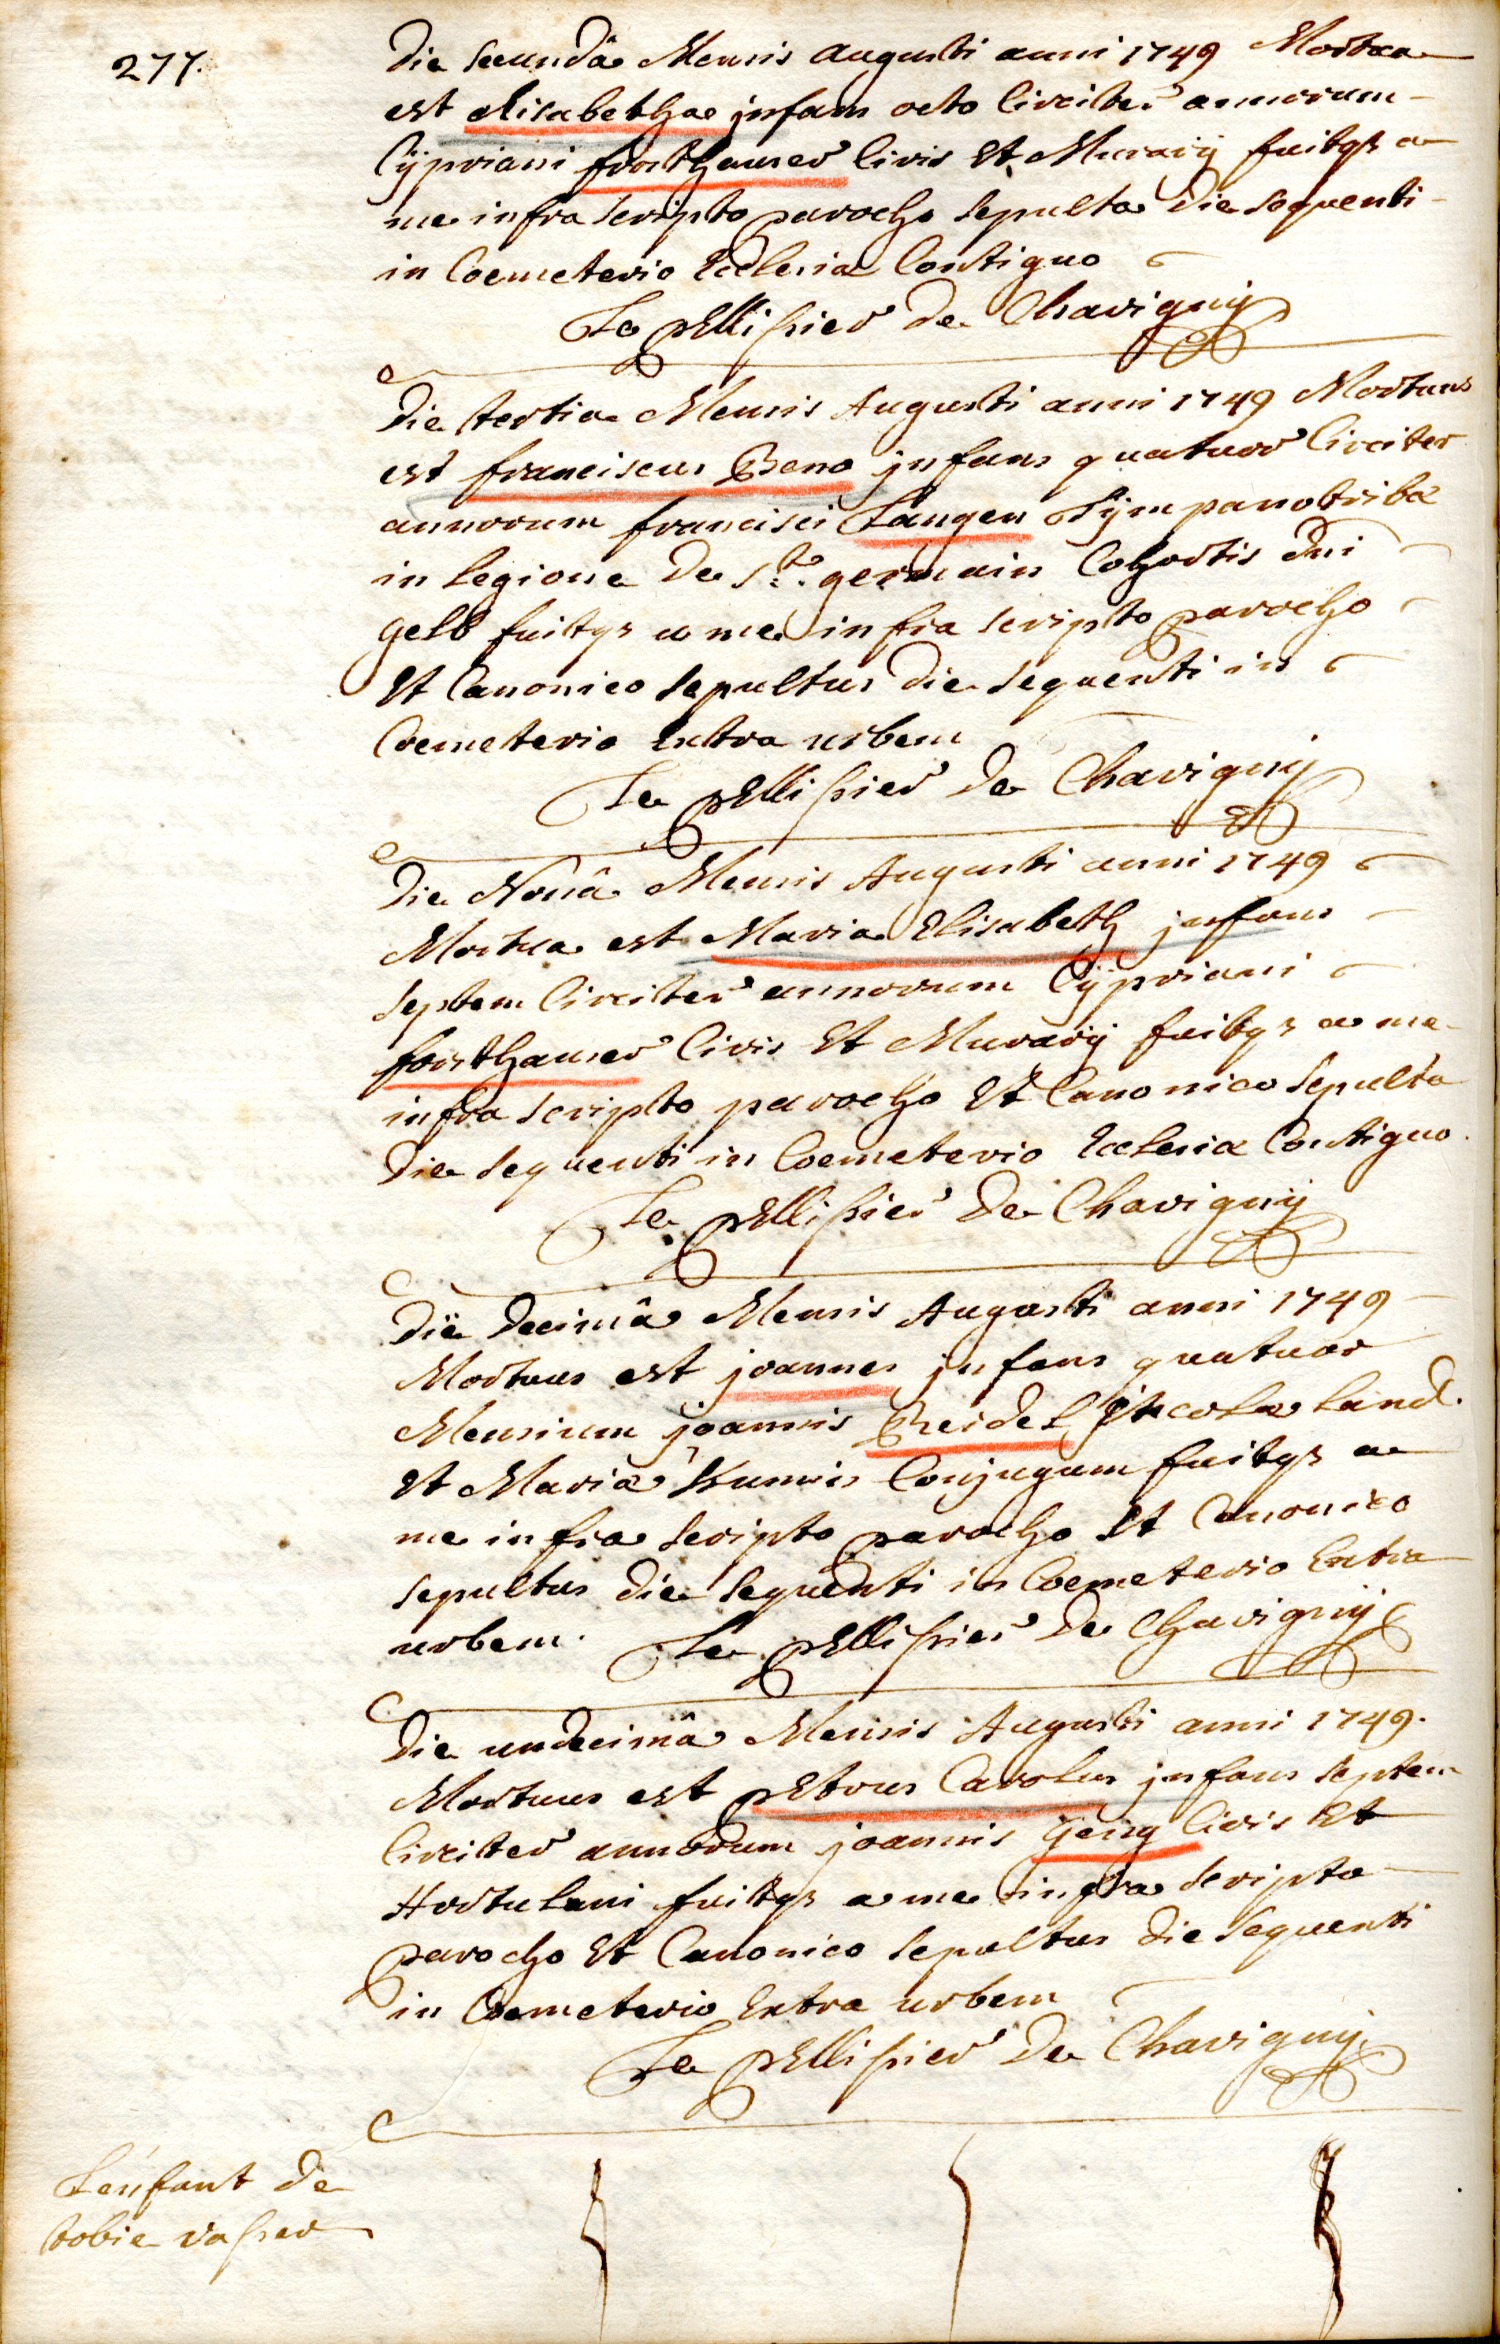 277.
Die secundâ Mensis augusti anni 1749 Mortua
est elisabetha jnfans octo Circiter annorum
Cÿpriani forsthauser Civis Et Murarij fuitqz a
me infra scripto parocho sepulta die sequenti
in Coemeterio Ecclesiæ Contiguo
Le pElissier de Chavignij
Die tertia Mensis Augusti anni 1749 Mortuus
est franciscus Beno jnfans quatuor Circiter
annorum francisci Langen tÿmpanotribæ
in legione de st. germain Cohortis Dni
gelb fuitqz a me infra scripto parocho
Et Canonico sepultus die sequenti in
Coemeterio Extra urbem
Le pElissier de Chavignij
Die Nonâ Mensis Augusti anni 1749
Mortua est Maria Elisabeth jnfans
septem Circiter annorum Cÿpriani
forsthauser Civis Et Murarij fuitqz a me
infra scripto parocho Et Canonico sepulta
die sequenti in Coemeterio Ecclesiæ Contiguo.
Le pElissier de Chavignij
Die decimâ Mensis Augusti anni 1749
Mortuus est joannes jnfans quatuor
Mensium joannis Reidel jncola Land.
Et Mariæ Conjugum fuitqz a
me infra scripto parocho Et Canonico
sepultus die sequenti in Coemeterio Extra
urbem. Le pElissier de Chavignij
Die undecimâ Mensis Augusti anni 1749.
Mortuus est pEtrus Carolus jnfans septem
Circiter annorum joannis Civis Et
Hortulani fuitqz a me infra scripto
parocho Et Canonico sepultus die sequenti
in Coemeterio Extra urbem
Le pElissier de Chavignij
L'enfant de
tobie vasser